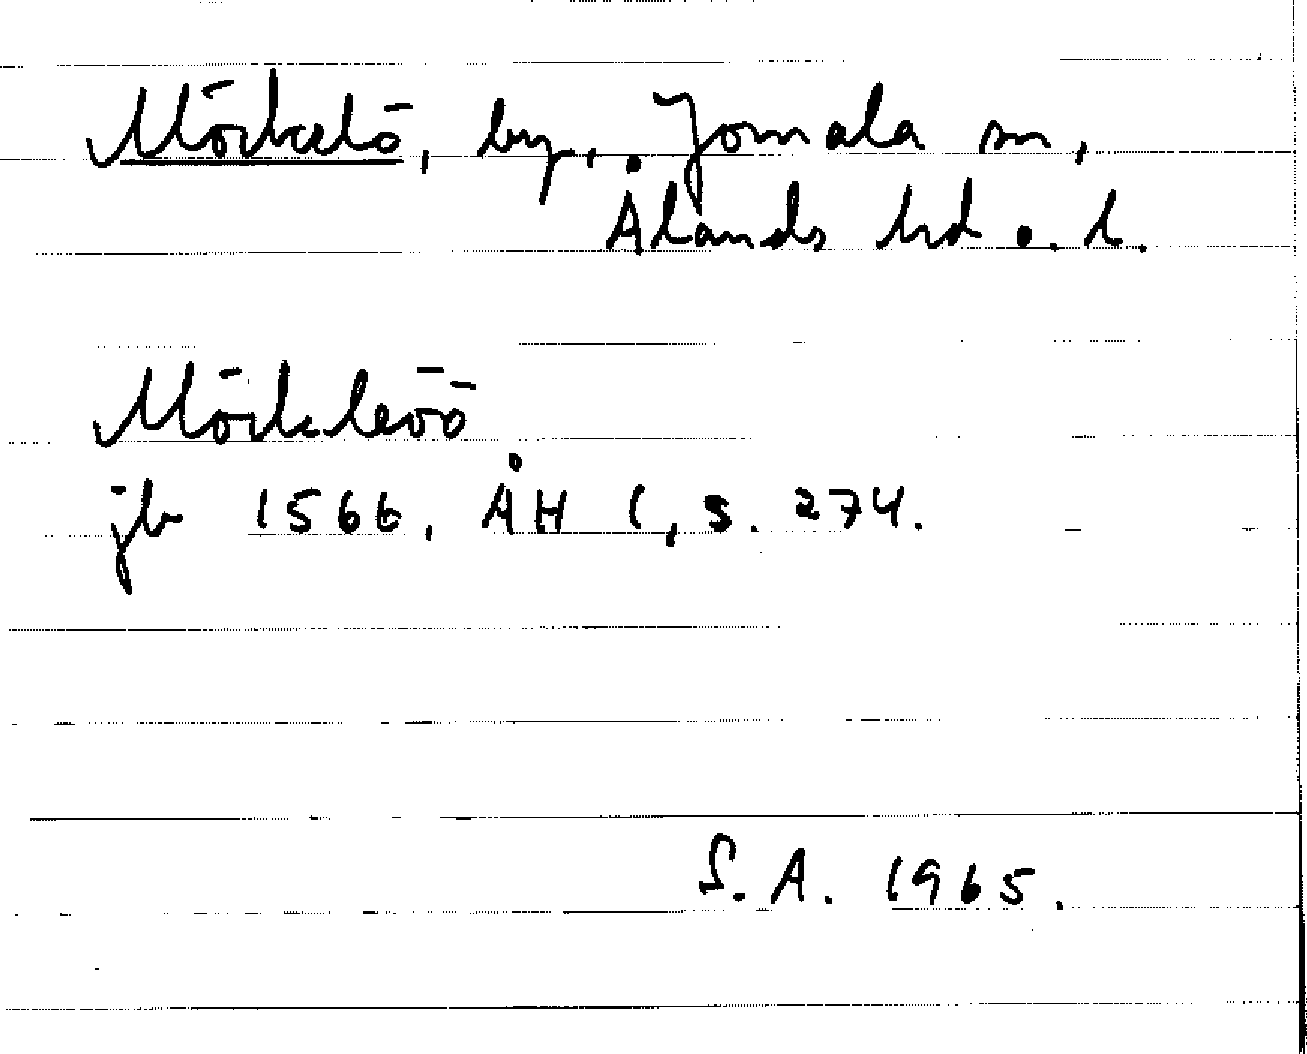 Möckelö, by, Jomala sn,
Ålands hd o. l.
Möckleöö
jb 1566, ÅH 1, s. 274.
S.A. 1965.